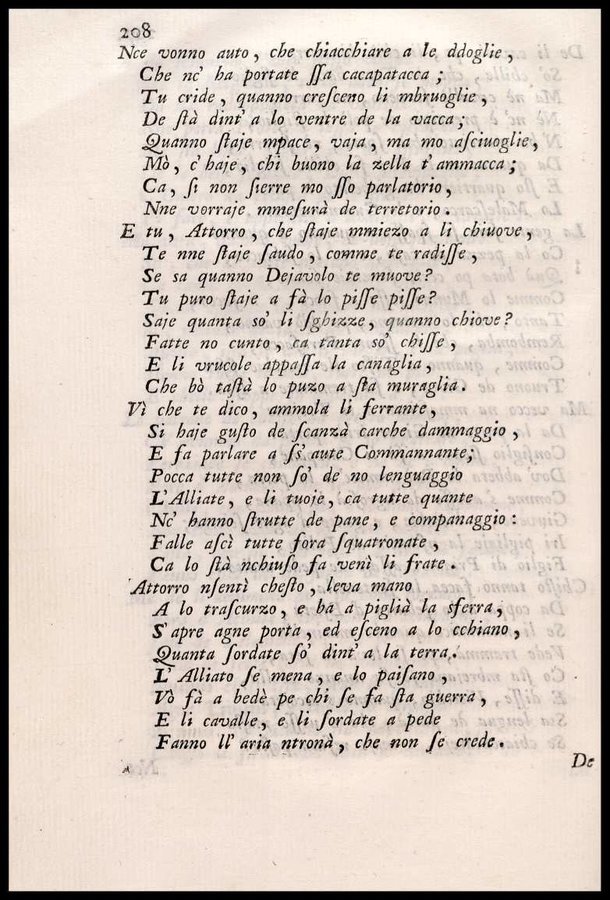 208
Nce vonno auto, che chiacchiare a le ddoglie,
Che nc' ha portate ſſa cacapatacca;
Tu cride, quanno creſceno li mbruoglie,
De ſtà dint' a lo ventre de la vacca;
Quanno ſtaje mpace, vaja, ma mo aſciuoglie,
Mò, c' haje, chi buono la zella t' ammacca;
Ca, ſi non ſierre mo ſſo parlatorio,
Nne vorraje mmeſurà de terretorio.
E tu, Attorro, che ſtaje mmiezo a li chiuove,
Te nne ſtaje ſaudo, comme te radiſſe,
Se sa quanno Dejavolo te muove?
Tu puro ſtaje a fà lo piſſe piſſe?
Saje quanta so' li ſghizze, quanno chiove?
Fatte no cunto, ca tanta so' chiſſe,
E li vrucole appaſſa la canaglia,
Che bò taſtà lo puzo a ſta muraglia.
Vì che te dico, ammola li ferrante,
Si haje guſto de ſcanzà carche dammaggio,
E fa parlare a ſs' aute Commannante;
Pocca tutte non ſo' de no lenguaggio
L'Alliate, e li tuoje, ca tutte quante
Nc' hanno ſtrutte de pane, e companaggio:
Falle aſcì tutte fora ſquatronate,
Ca lo ſtà nchiuſo fa venì li frate.
Attorro nſentì cheſto, leva mano
A lo traſcurzo, e ba a piglià la sferra,
S'apre agne porta, ed eſceno a lo cchiano,
Quanta ſordate ſo' dint' a la terra.
L' Alliato ſe mena, e lo paiſano,
Vò fà a bedè pe chi ſe fa ſta guerra,
E li cavalle, e li ſordate a pede
Fanno ll' aria ntronà, che non ſe crede.
De